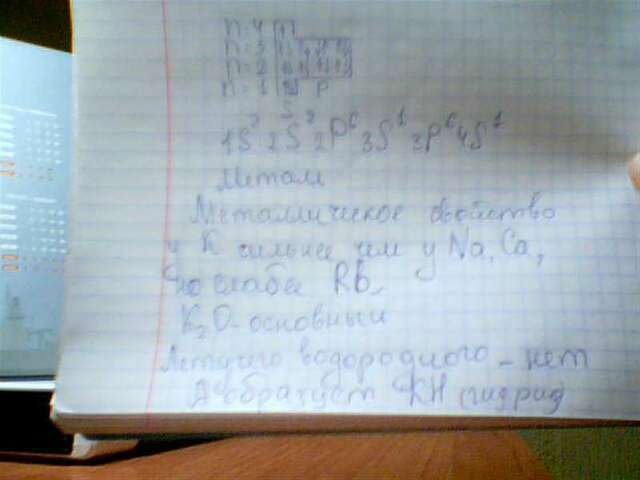 n=4
n=3
n=2
n=1 S P
1S² 2S² 2P⁶ 3S¹ 3P⁶ 4S¹
Металл
Металлическое свойство
у K сильнее чем у Na, Ca,
но слабее Rb,
K₂O - основный
Летучего водородного - нет
образует KH гидрид